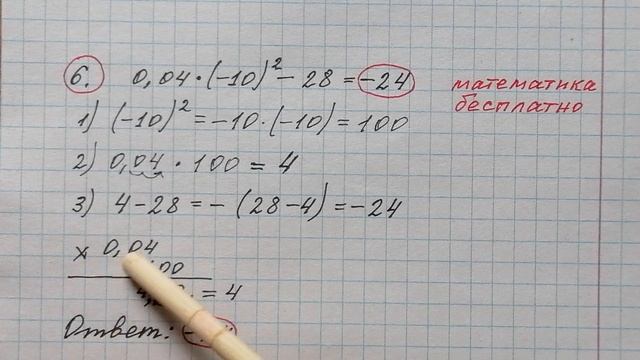 6. 0,04·(-10)² - 28 = -24
математика
бесплатно
1) (-10)² = -10·(-10) = 100
2) 0,04 · 100 = 4
3) 4 - 28 = - (28 - 4) = -24
× 0,04
= 4
Ответ: